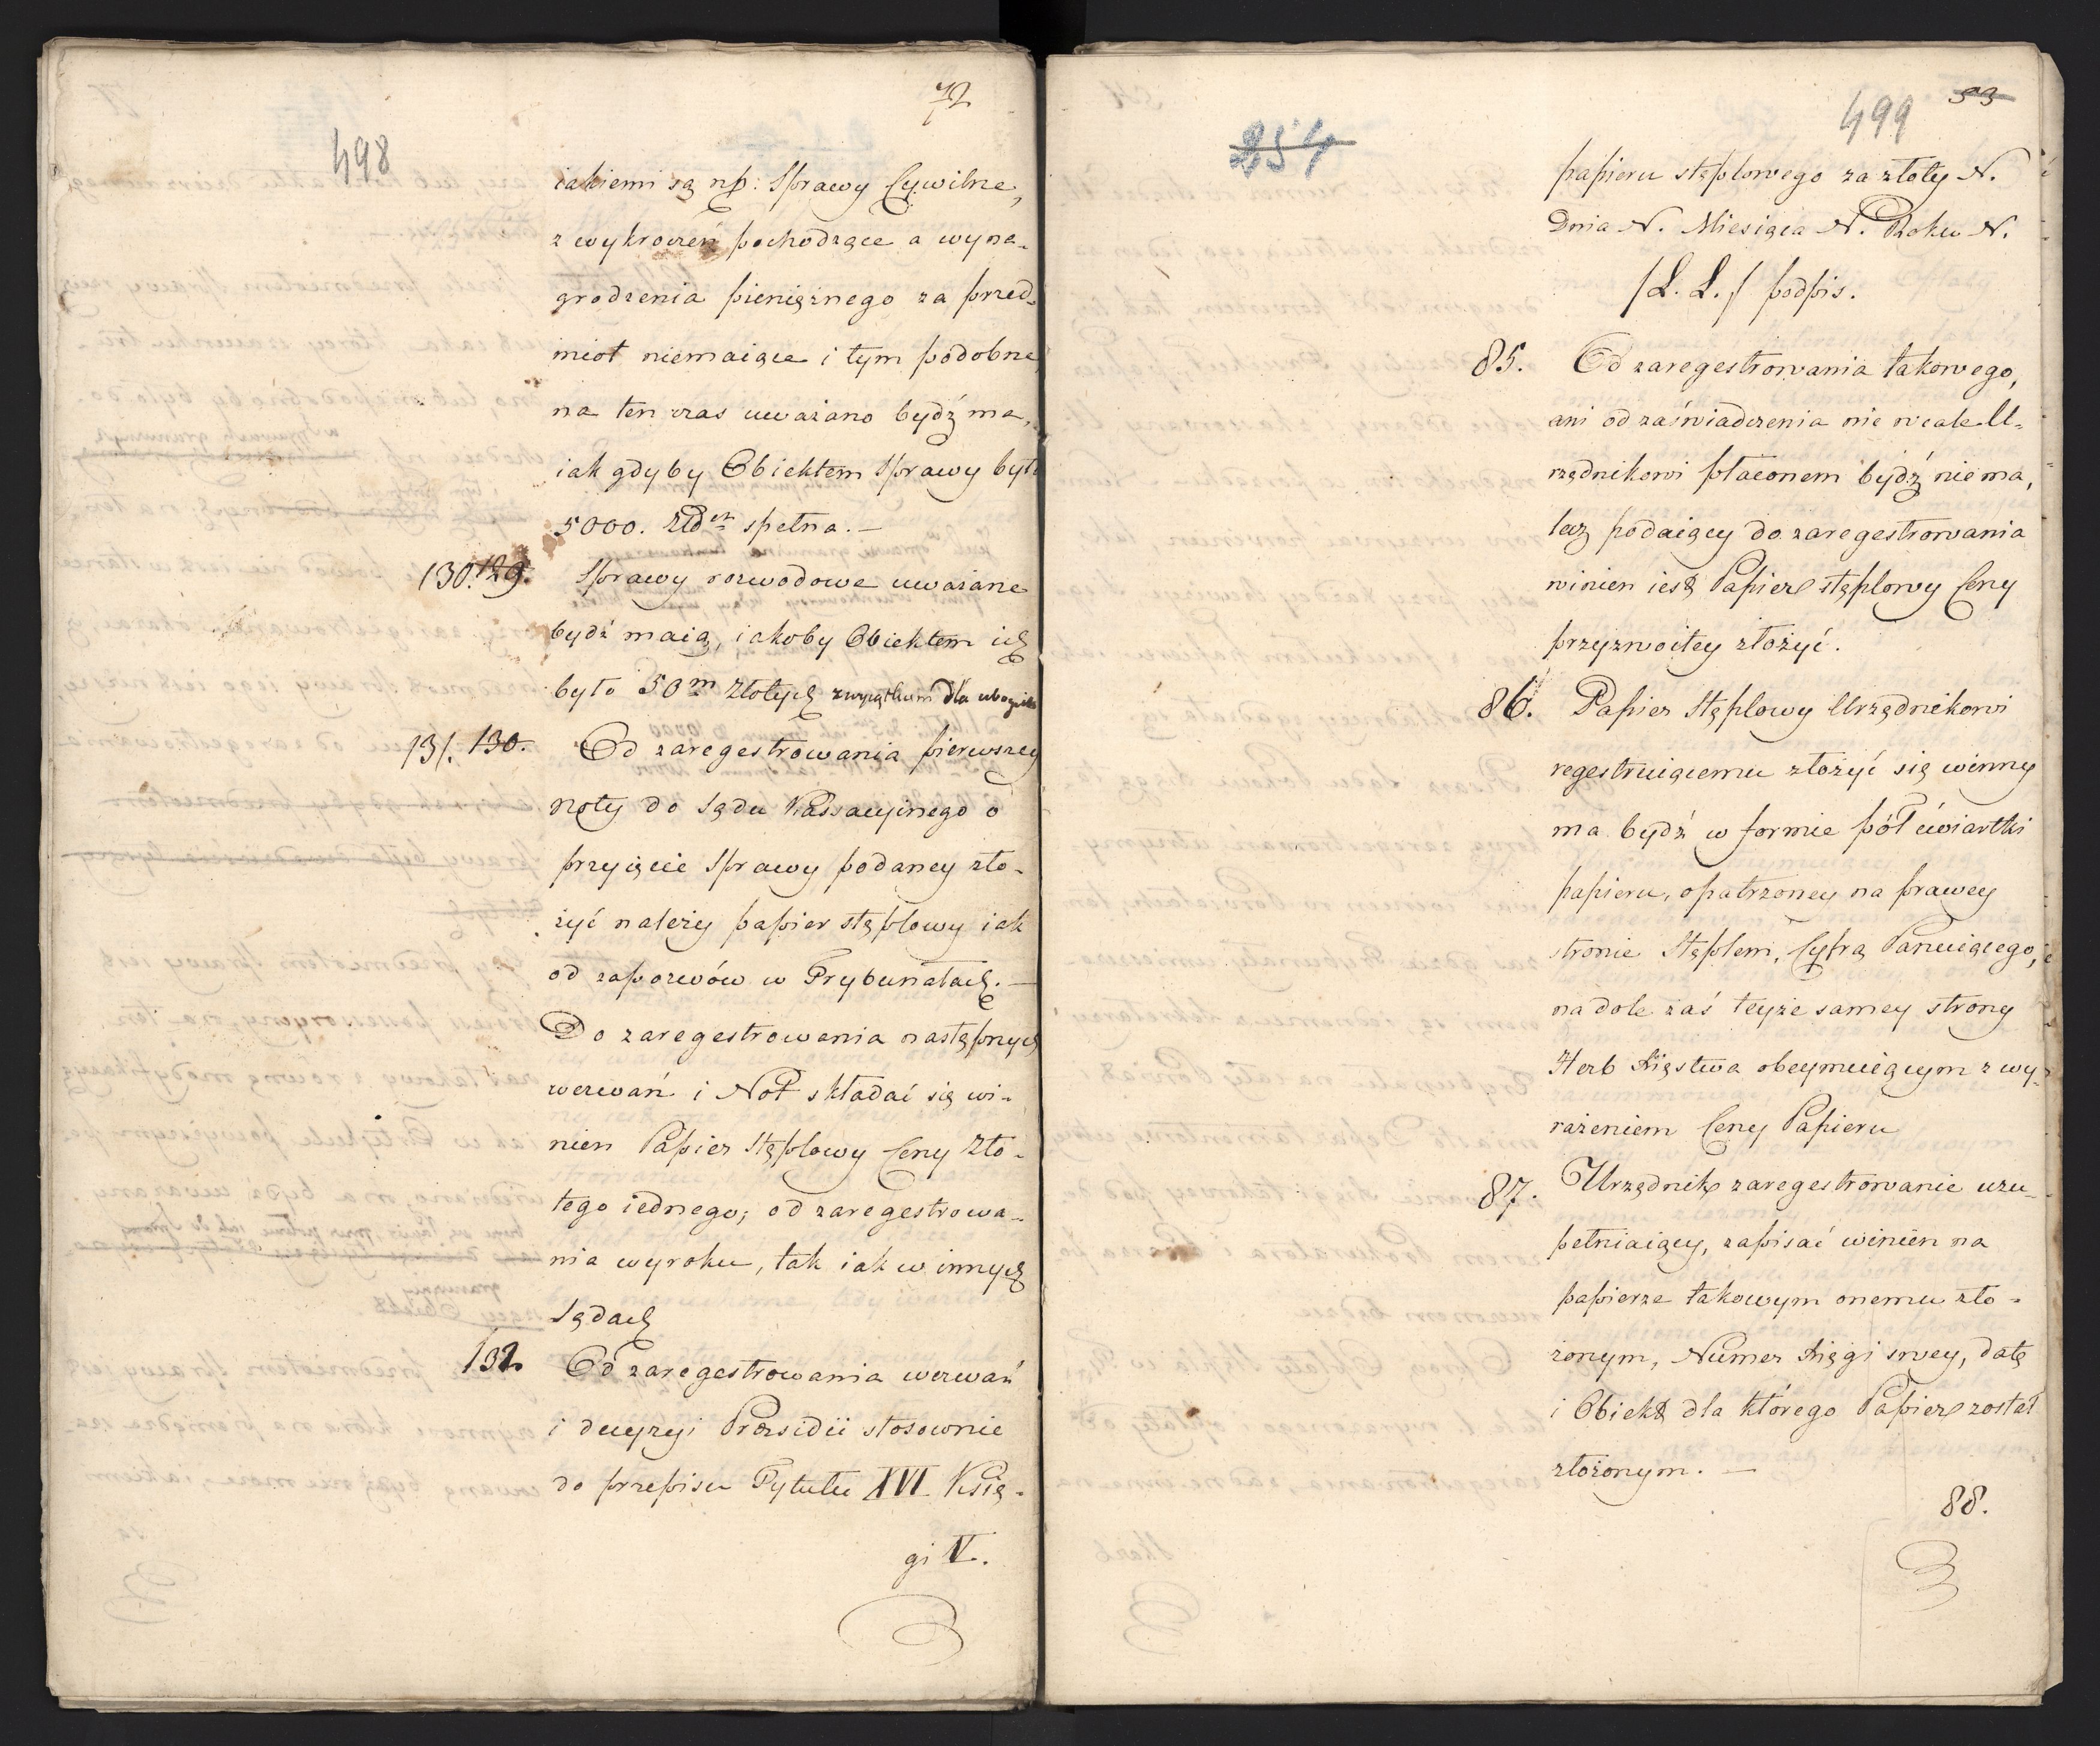 72
498
iakiemi są np: Sprawy Cywilne,
z wykroczeń pochodzące a wyna-
grodzenia pieniężnego za przed-
miot niemaiące i tym podobne
na ten czas uważano bydź ma,
iak gdyby Obiektem Sprawy było
5000. spełna. —
130. 129. Sprawy rozwodowe uważane
bydź maią, iakoby Obiektem ich
było 50m złotych z wyiątkiem dla ubogich
131. 130. Od zaregestrowania pierwszey
noty do Sądu Kassacyinego o
przyięcie Sprawy podaney zło-
żyć należy papier stęplowy iak
od zapozwów w Trybunałach. —
Do zaregestrowania następnych
wezwań i Not składać się wi-
nien Papier Stęplowy Ceny Zło-
tego iednego; od zaregestrowa-
nia wyroku, tak iak w innych
Sądach
132. Od zaregestrowania wezwań
i decyzyi Prezsidii stosownie
do przepisu Tytułu XVI Księ-
gi V.
53
499
254
papieru stęplowego za złoty N.
Dnia N. Miesiąca N. Roku N.
/L. L./ podpis.
85. Od zaregestrowania takowego,
ani od zaświadczenia nic wcale U-
rzędnikowi płaconem bydź nie ma,
lecz podaiący do zaregestrowania
winien iest Papier stęplowy Ceny
przyzwoitey złożyć.
86. Papier Stęplowy Urzędnikowi
regestruiącemu złożyć się winny
ma bydź w formie pół ćwiartki
papieru, opatrzoney na prawey
stronie Stęplem, Cyfrą Panuiącego,
na dole zaś teyże samey strony
Herb Xięstwa obeymuiącym z wy-
rażeniem Ceny Papieru
87. Urzędnik zaregestrowanie uzu-
pełniaiący, zapisać winien na
papierze takowym onemu zło-
żonym, Numer Xięgi swey, datę
i Obiekt dla którego Papier został
złożonym. —
88.